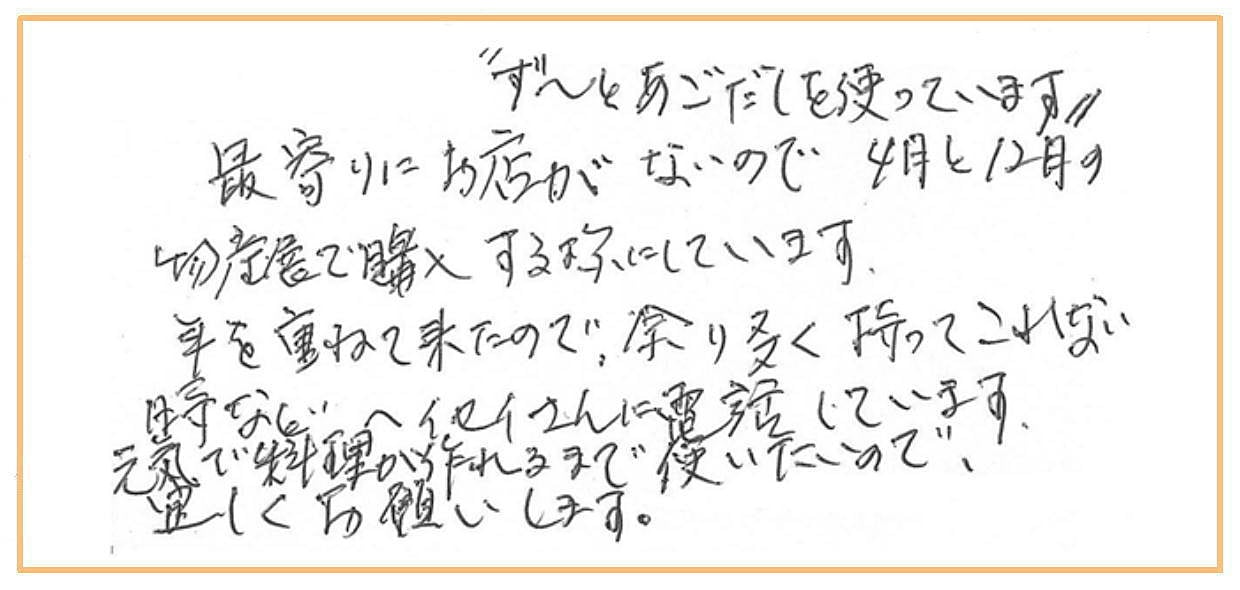 "ず〜とあごだしを使っています"
最寄りにお店がないので 4月と12月の
物産展で購入する様にしています。
年を重ねて来たので、余り多く持ってこれない
時など ヘイセイさんに電話しています。
元気で料理が作れるまで使いたいので、
宜しくお願いします。